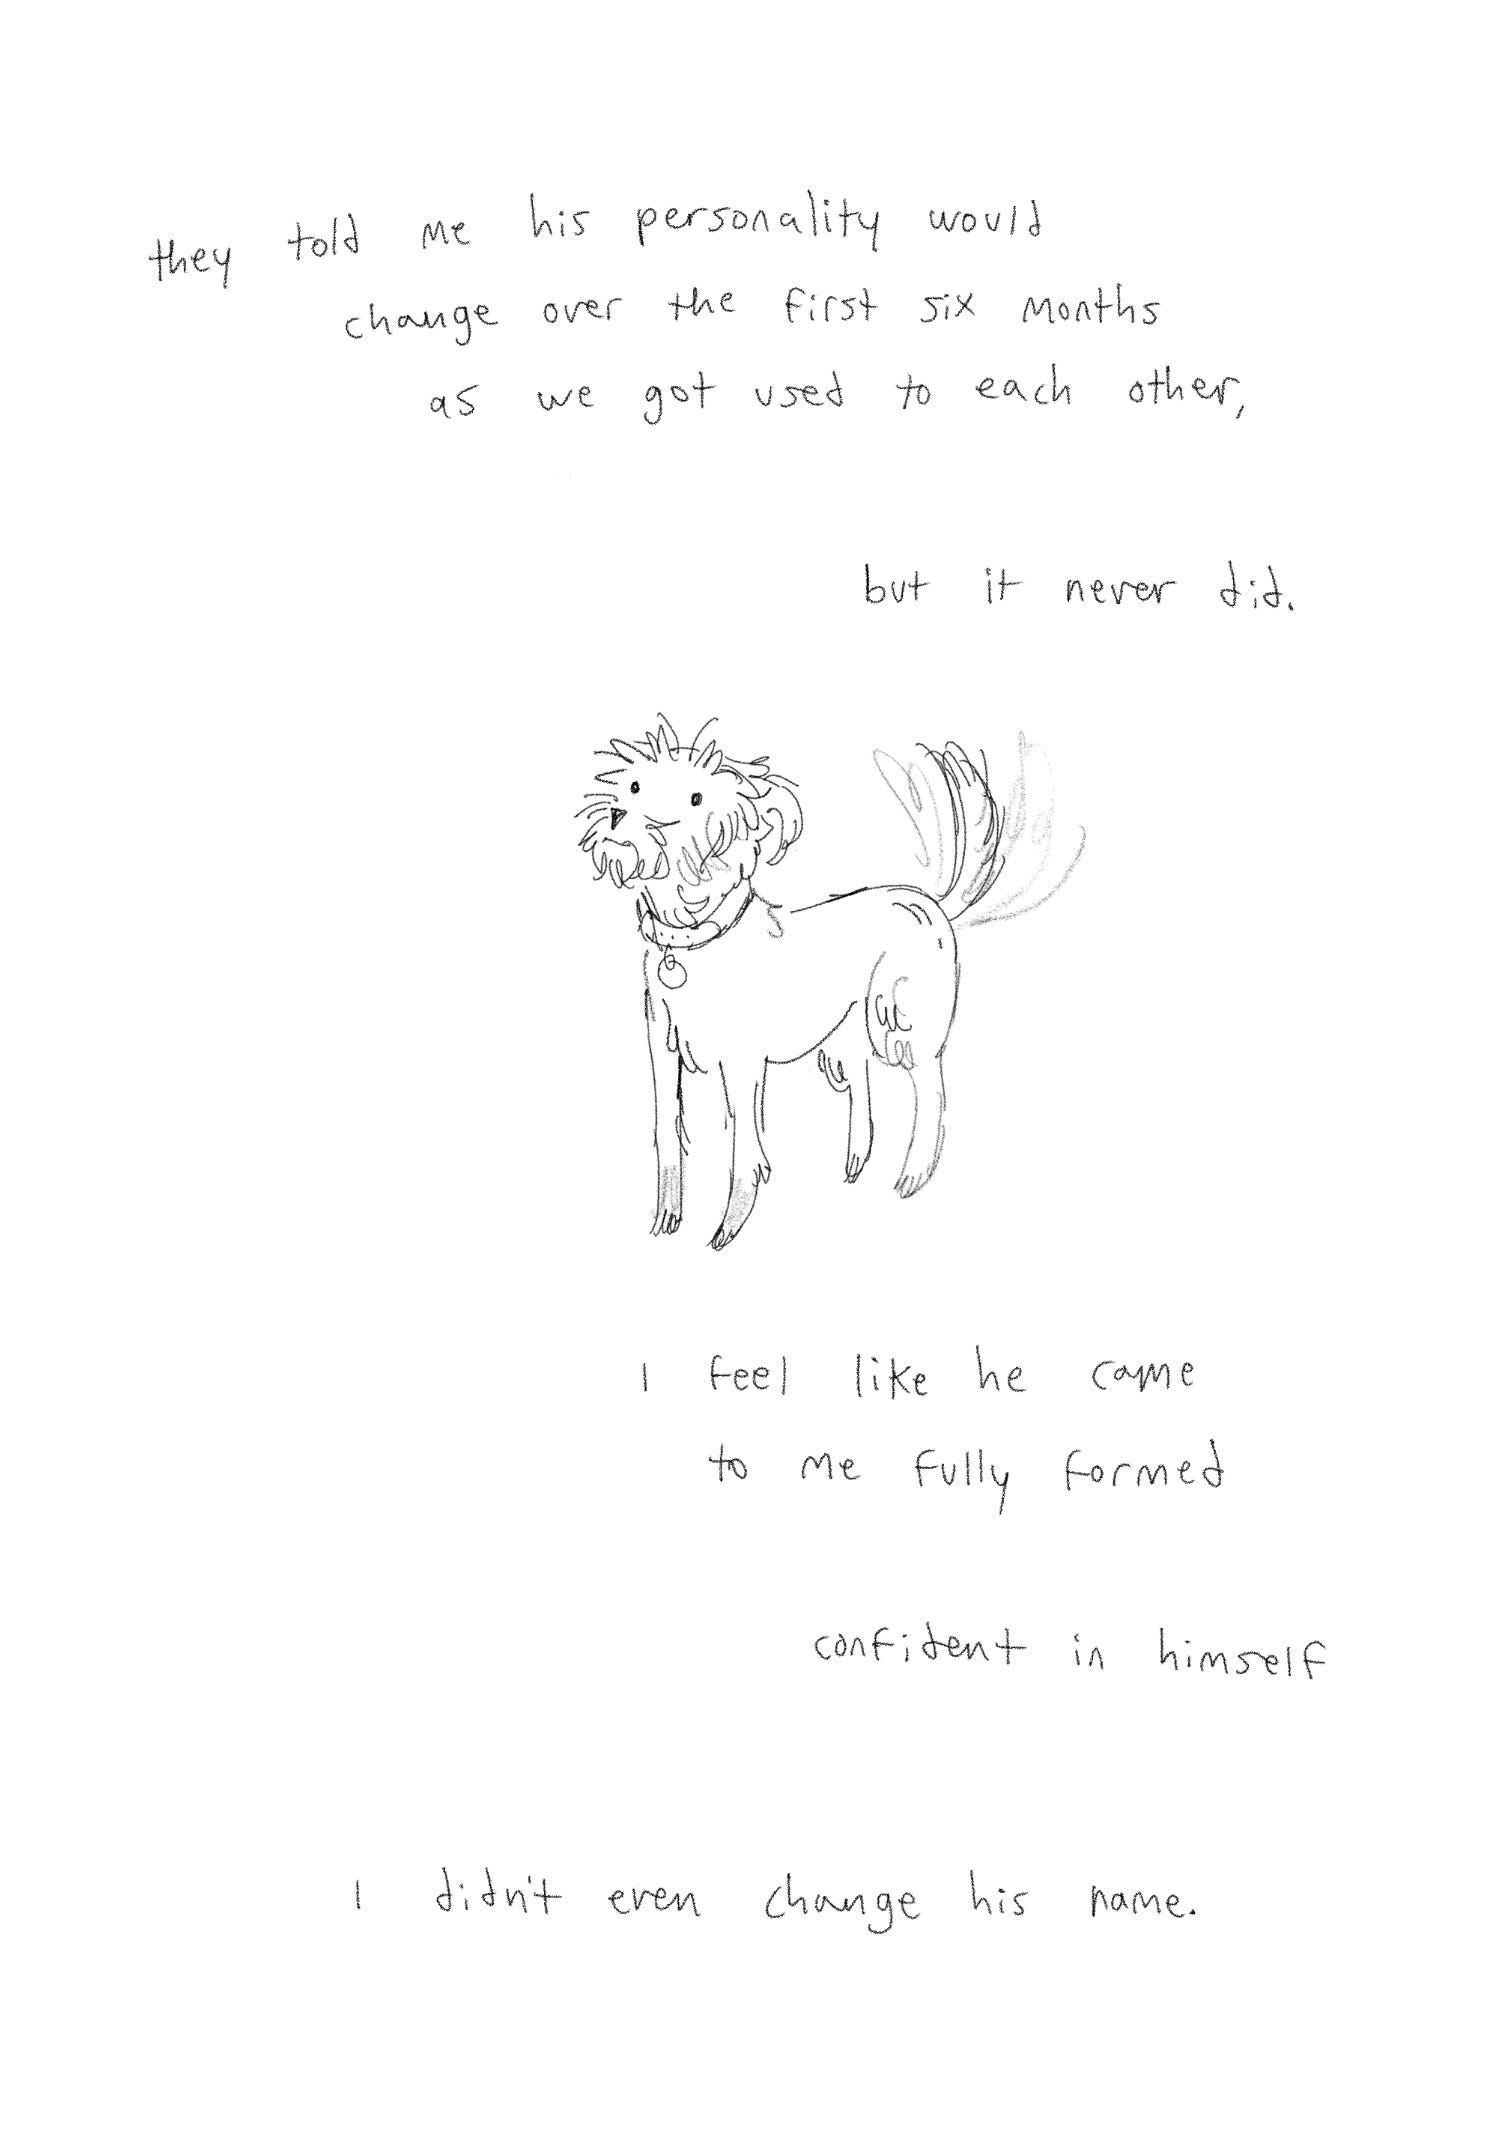 they told me his personality would
change over the first six months
as we got used to each other,
but it never did.
I feel like he came
to me fully formed
confident in himself
I didn't even change his name.